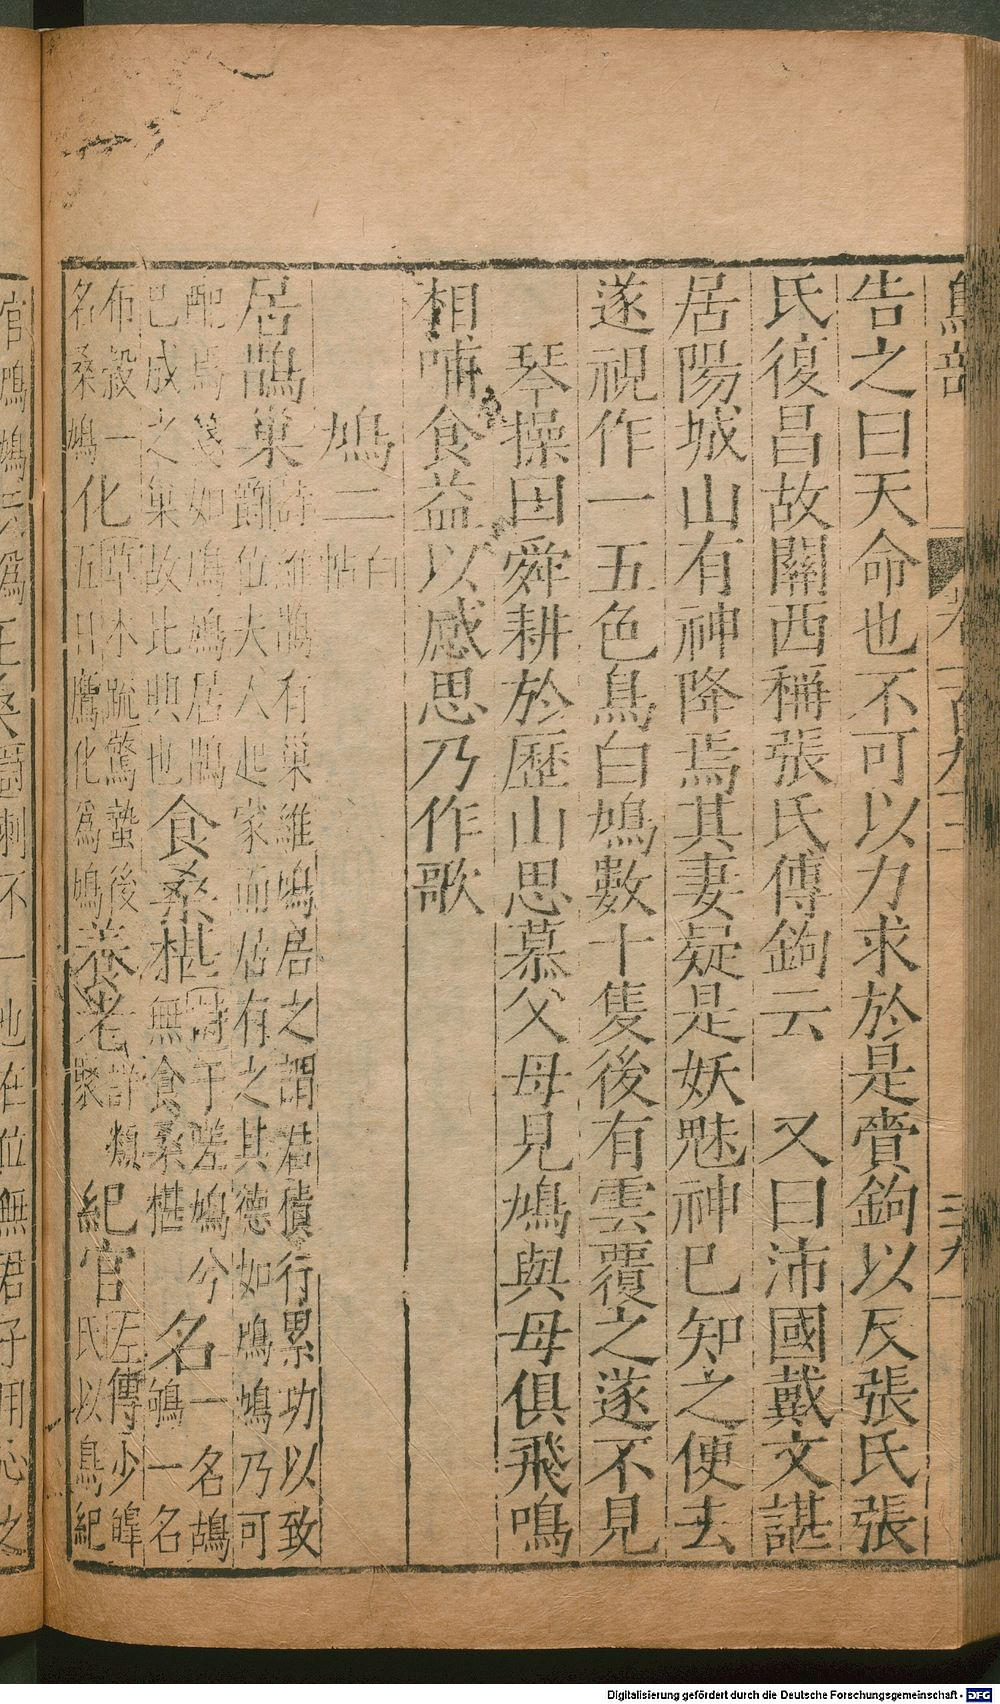 告之曰天命也不可以力求於是賫鉤以反張氏張
氏復昌故關西稱張氏傳鉤云　又曰沛國戴文諶
居陽城山有神降焉其妻疑是妖魅神已知之便去
遂視作一五色鳥白鳩數十隻後有雲覆之遂不見
琴操曰舜耕於歷山思慕父母見鳩與母俱飛鳴
相哺食益以感思乃作歌
鳩二白帖
居鵲巢詩維鵲有巢維鳩居之謂君積行累功以致
爵位夫人起家而居有之其德如鳲鳩乃可
配焉箋如鳲鳩居鵲
巳成之巢故比興也食桑椹詩于嗟鳩兮
無食桑椹名一名鴣
鵴一名
布穀一
名桑鳩化草木疏驚蟄後
五日鷹化爲鳩養老詳類
聚紀官左傳少皞
氏以鳥紀
官鳲鳩
之
三九
Digitalisierung gefördert durch die Deutsche Forschungsgemeinschaft - DFG